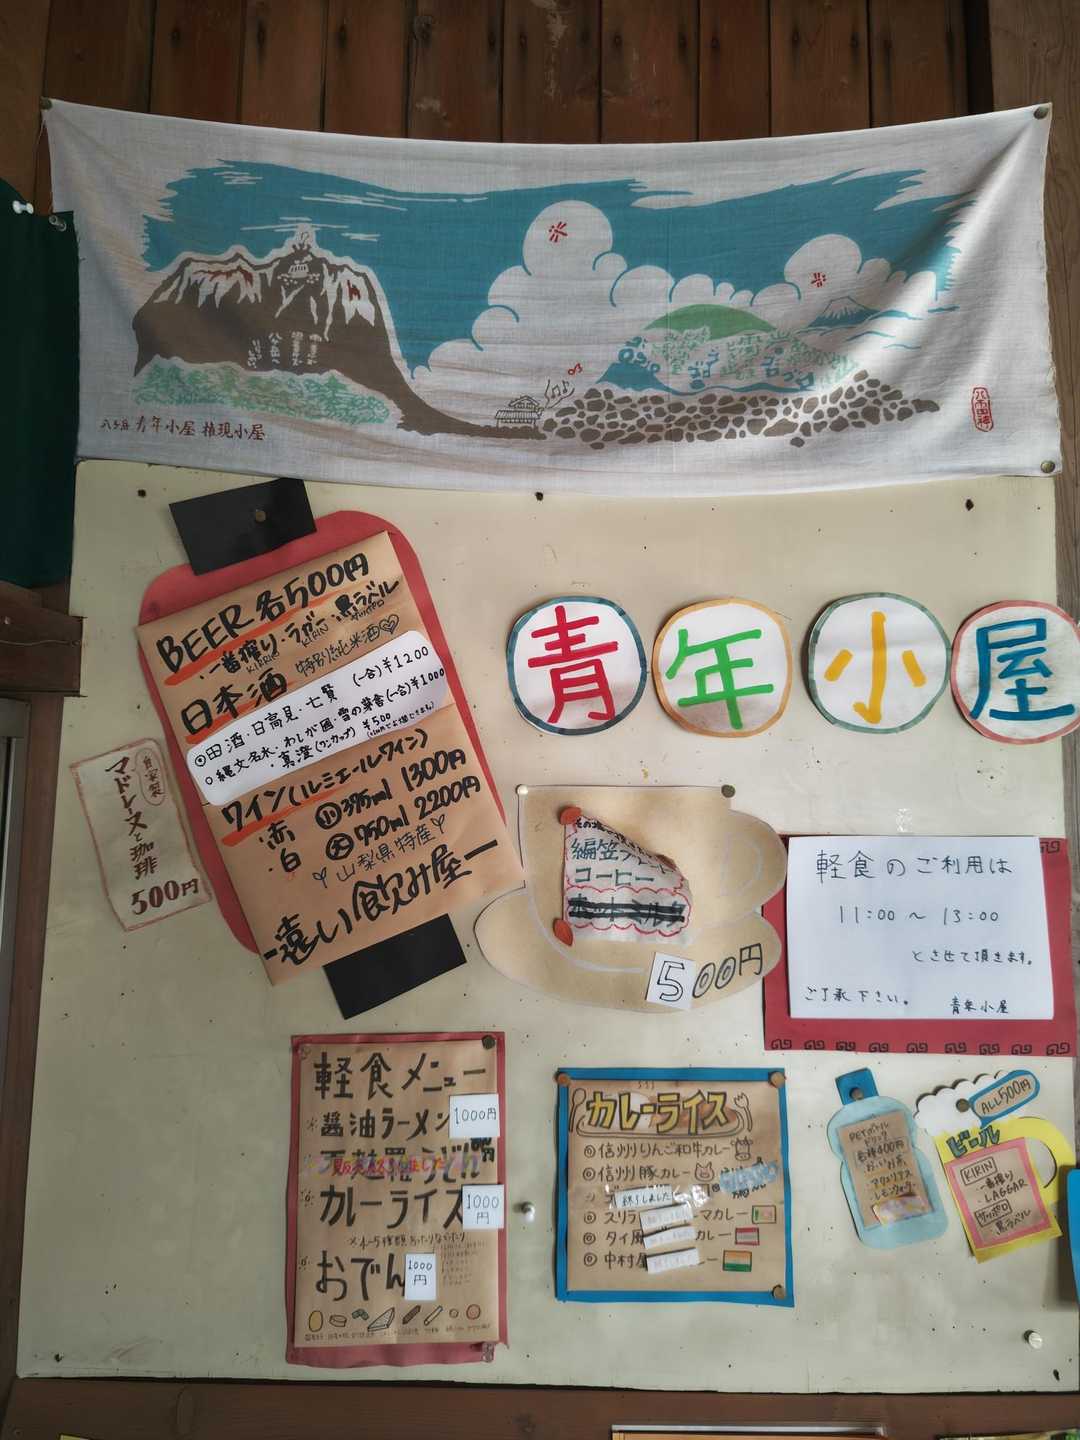 八ヶ岳 青年小屋 権現小屋
BEER 各500円
一番搾り・ラガー・黒ラベル
KIRIN
日本酒 特別純米酒
◎田酒・日高見・七賢 (一合)¥1200
○縄文名水・わしが國・雪の茅舎(一合)¥1000
・真澄(ワンカップ) ¥500
ワイン(ルミエールワイン)
赤 小 375ml 1300円
白 大 750ml 2200円
山梨県特産
遠い飲み屋
青年小屋
自家製
マドレーヌと珈琲
500円
編笠
コーヒー
ホットミルク
500円
軽食のご利用は
11:00〜13:00
とさせて頂きます。
ご了承下さい。 青年小屋
軽食メニュー
醤油ラーメン 1000円
カレーライス 1000円
※4〜5種類
おでん 1000円
カレーライス
◎信州りんご和牛カレー
◎信州豚カレー
終了しました
◎スリラ マカレー
◎タイ風 カレー
◎中村屋 レー
PETボトル
ドリンク
各種400円
・お〜いお茶
・アクエリアス
ALL500円
ビール
KIRIN
・一番搾り
・LAGGAR
サッポロ
・黒ラベル